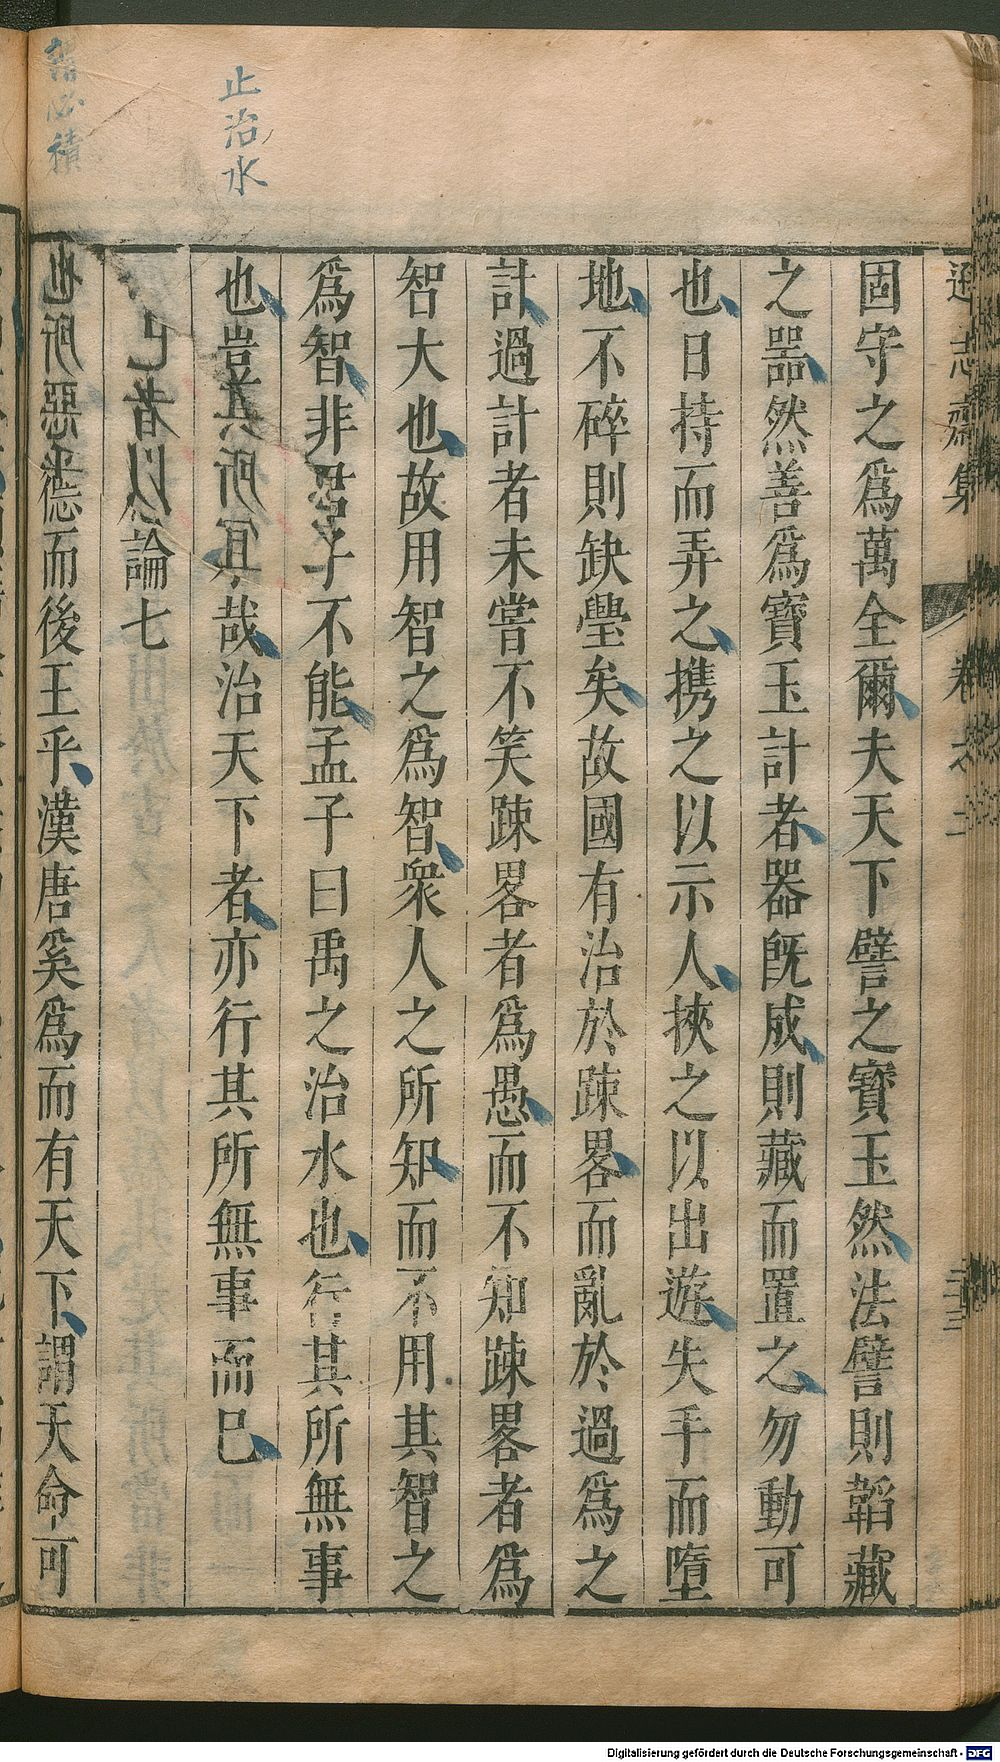 遜志齋集
卷之二
三三
固守之爲萬全爾夫天下譬之寶玉然法譬則韜藏
之器然善爲寶玉計者器旣成則藏而置之勿動可
也日持而弄之携之以示人挾之以出遊失手而墮
地不碎則缺璺矣故國有治於踈畧而亂於過爲之
計過計者未嘗不笑踈畧者爲愚而不知踈畧者爲
智大也故用智之爲智衆人之所知而不用其智之
爲智非君子不能孟子曰禹之治水也行其所無事
也豈其所宜哉治天下者亦行其所無事而已
論七
而後王乎漢唐奚爲而有天下謂天命可
止治水
必積
Digitalisierung gefördert durch die Deutsche Forschungsgemeinschaft - DFG